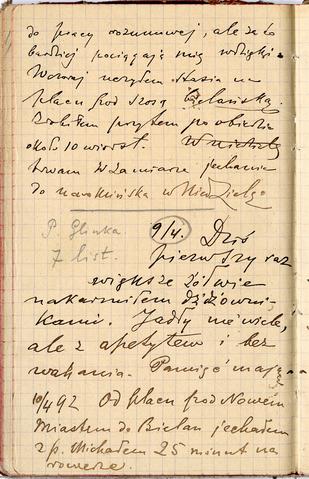 do pracy rozumowej, ale za to
bardziej pociągają mię wdzięki.
Wczoraj uczyłem Stasia na
placu pod szosą Bielańską.
Zrobiłem przytem po obiedzie
około 10 wiorst. W niedzielę
trwam w zamiarze jechania
do nowomińska w Niedzielę
P. Glinka
7 list.
9/4. Dziś
pierwszy raz
większe żółwie
nakarmiłem dżdżowni-
kami. Jadły niewiele,
ale z apetytem i bez
wahania. Pamięć mają
10/4 92 Od placu pod Nowem
Miastem do Bielan jechałem
z p. Michałem 25 minut na
rowerze.